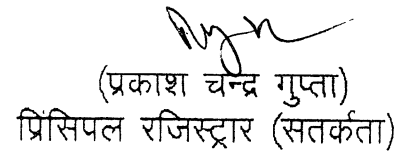 (प्रकाश चन्द्र गुप्ता)
प्रिंसिपल रजिस्ट्रार (सतर्कता)